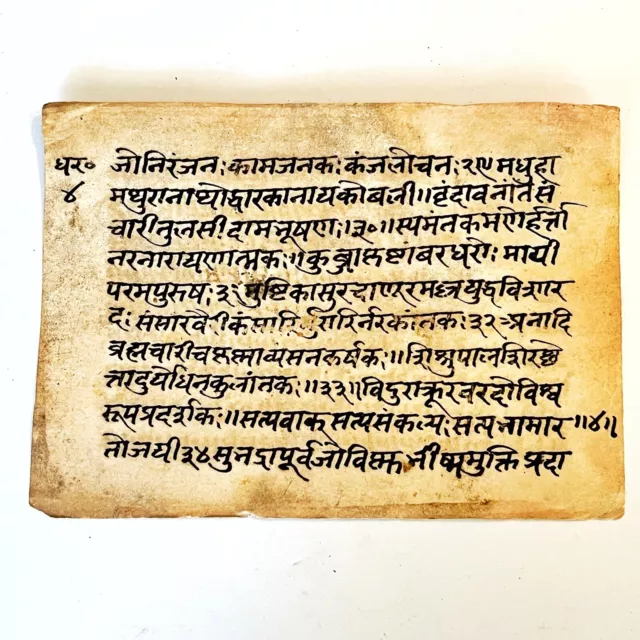 धर० जोनिरंजनः कामजनकः कंजलोचनः २९ मधुहा
४ मथुरानाथोद्वारकानायकोबली॥वृंदावनांतसं
चारीतुलसीदामभूषणः।३०॥स्यमंतकमणेर्हर्त्ता
नरनारायणात्मकः॥कुब्जाकृष्टांबरधरोः मायी
परमपुरुषः३१ मुष्टिकासुरचाणूरमल्लयुद्धविशार
दः संसारवैरीकंसारिर्मुरारिर्नरकांतकः ३२ अनादि
ब्रह्मचारीचकृष्णाव्यसनकर्षकः॥शिशुपालशिरच्छे
त्तादुर्योधनकुलांतकः॥३३॥विदुराक्रूरवरदोविश्व
रूपप्रदर्शकः॥सत्यवाकसत्यसंकल्पः सत्यभामार ॥४॥
तोजयी३४सुभद्रापूर्वजोविष्णु भीष्ममुक्तिप्रदा